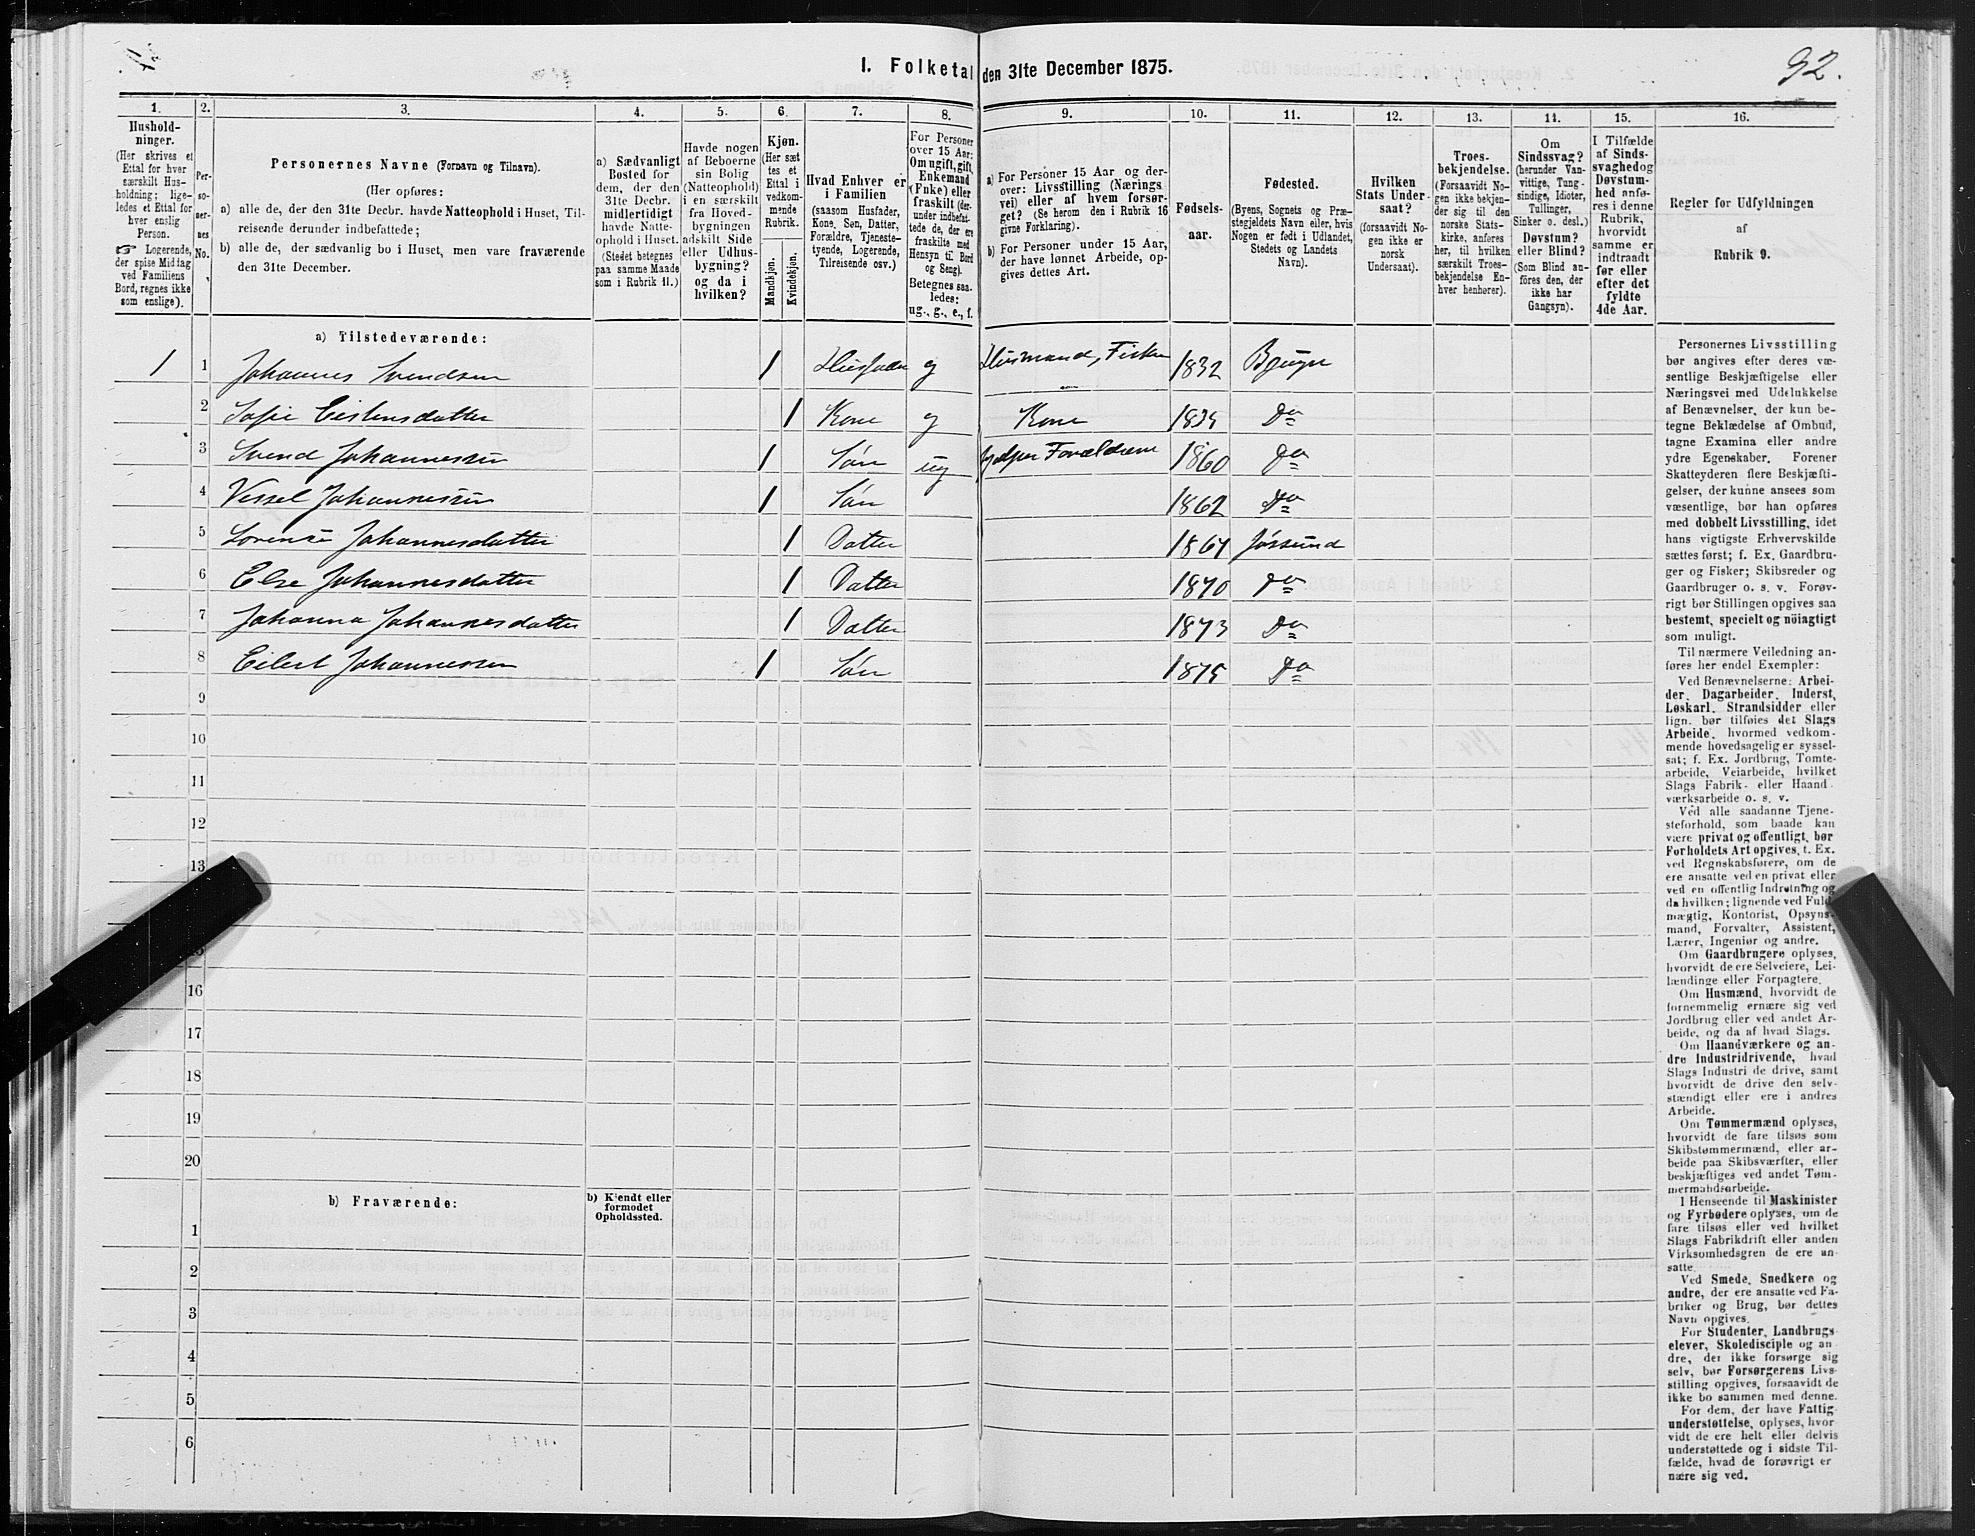 4.
1. Folketal den 31te December 1875.
92.
1.
2.
3.
4.
5.
6.
7.
8.
9.
10.
11.
12.
13.
14.
15.
16.
Hushold-
ninger.
(Her skrives et
Ettal for hver
særskilt Hus-
holdning; lige-
ledes et Ettal for
hver enslig
Person.
☞ Logerende,
der spise Middag
ved Familiens
Bord, regnes ikke
som enslige).
Per-
so-
ner-
nes
No.
Personernes Navne (Fornavn og Tilnavn).
(Her opføres:
a) alle de, der den 31te Decbr. havde Natteophold i Huset, Til-
reisende derunder indbefattede;
b) alle de, der sædvanlig bo i Huset, men vare fraværende
den 31te December.
a) Sædvanligt
Bosted for
dem, der den
31te Decbr.
midlertidigt
havde Natte-
ophold i Huset.
(Stedet betegnes
paa samme Maade
som i Rubrik 11.)
Havde nogen
af Beboerne
sin Bolig
(Natteophold)
i en særskilt
fra Hoved-
bygningen
adskilt Side
eller Udhus-
bygning?
og da i
hvilken?
Kjøn.
(Her sæt
tes et
Ettal i
vedkom-
mende
Rubrik.
Mandkjøn.
Kvindekjøn.
Hvad Enhver er
i Familien
(saasom Husfader,
Kone, Søn, Datter,
Forældre, Tjeneste-
tyende, Logerende,
Tilreisende osv.)
For Personer
over 15 Aar:
Om ugift, gift,
Enkemand
(Enke) eller
fraskilt (der-
under indbefat-
tede de, der ere
fraskilte med
Hensyn til Bord
og Seng).
Betegnes saa-
ledes:
ug., g., e., f.
a) For Personer 15 Aar og der-
over: Livsstilling (Nærings
vei) eller af hvem forsør-
get? (Se herom den i Rubrik 16
givne Forklaring).
b) For Personer under 15 Aar,
der have lønnet Arbeide, op-
gives dettes Art.
Fødsels-
aar.
Fødested.
(Byens, Sognets og Præ-
stegjeldets Navn eller, hvis
Nogen er født i Udlandet,
Stedets og Landets
Navn).
Hvilken
Stats Under-
saat?
(forsaavidt No-
gen ikke er
norsk
Undersaat).
Troes-
bekjendelse.
(Forsaavidt No-
gen ikke bekjen-
der sig til den
norske Stats-
kirke, anføres
her, til hvilken
særskilt Troes-
bekjendelse En-
hver henhører).
Om
Sindssvag?
(herunder Van-
vittige, Tung-
sindige, Idioter,
Tullinger,
Sinker o. desl.)
Døvstum?
eller Blind?
(Som Blind an-
føres den, der
ikke har
Gangsyn).
I Tilfælde
af Sinds-
svaghed og
Døvstum-
hed anfø-
res i denne
Rubrik,
hvorvidt
samme er
indtraadt
før eller
efter det
fyldte
4de Aar.
Regler for Udfyldningen
af
Rubrik 9.
a) Tilstedeværende:
1 1 Johannes Svendsen 1 Husfader g Husmand, Fisker 1832 Bjugn
2 Sofie Eistensdatter 1 Kone g Kone 1835 Do
3 Svend Johannessen 1 Søn ug hjelper Forældrene 1860 Do
4 Vessel Johannessen 1 Søn 1862 Do
5 Lorense Johannesdatter 1 Datter 1867 Jøssund
6 Else Johannesdatter 1 Datter 1870 Do
7 Johanna Johannesdatter 1 Datter 1873 Do
8 Eilert Johannessen 1 Søn 1875 Do
9
10
11
12
13
15
16
17
18
19
20
b) Fraværende:
b) Kjendt eller
formodet
Opholdssted.
1
2
3
4
5
6
Personernes Livsstilling
bør angives efter deres væ-
sentlige Beskjæftigelse eller
Næringsvei med Udelukkelse
af Benævnelser, der kun be-
tegne Beklædelse af Ombud,
tagne Examina eller andre
ydre Egenskaber. Forener
Skatteyderen flere Beskjæfti-
gelser, der kunne ansees som
væsentlige, bør han opføres
med dobbelt Livsstilling, idet
hans vigtigste Erhvervskilde
sættes først; f. Ex. Gaardbru-
ger og Fisker; Skibsreder og
Gaardbruger o. s. v. Forøv-
rigt bør Stillingen opgives saa
bestemt, specielt og nöiagtigt
som muligt.
Til nærmere Veiledning an-
føres her endel Exempler:
Ved Benævnelserne: Arbei-
der, Dagarbeider, Inderst,
Løskarl, Strandsidder eller
lign. bør tilføies det Slags
Arbeide, hvormed vedkom-
mende hovedsagelig er syssel-
sat; f. Ex. Jordbrug, Tomte-
arbeide, Veiarbeide, hvilket
Slags Fabrik- eller Haand
værksarbeide o. s. v.
Ved alle saadanne Tjene-
steforhold, som baade kan
være privat og offentligt, bør
Forholdets Art opgives, t. Ex.
ved Regnskabsførere, om de
ere ansatte ved en privat eller
ved en offentlig Indretning og
da hvilken; lignende ved Fuld-
mægtig, Kontorist, Opsyns-
mand, Forvalter, Assistent,
Lærer, Ingeniør og andre.
Om Gaardbrugere oplyses,
hvorvidt de ere Selveiere, Lei-
lændinge eller Forpagtere.
Om Husmænd, hvorvidt de
fornemmelig ernære sig ved
Jordbrug eller ved andet Ar-
beide, og da af hvad Slags.
Om Haandværkere og an-
dre Industridrivende, hvad
Slags Industri de drive, samt
hvorvidt de drive den selv-
stændigt eller ere i andres
Arbeide.
Om Tømmermænd oplyses,
hvorvidt de fare tilsøs som
Skibstømmermænd, eller ar-
beide paa Skibsværfter, eller
beskjæftiges ved andet Tøm-
mermandsarbeide.
I Henseende til Maskinister
og Fyrbødere oplyses, om de
fare tilsøs eller ved hvilket
Slags Fabrikdrift eller anden
Virksomhedsgren de ere an-
satte.
Ved Smede, Snedkere og
andre, der ere ansatte ved Fa-
briker og Brug, bør dettes
Navn opgives.
For Studenter, Landbrugs-
elever, Skoledisciple og an
dre, der ikke forsørge sig
selv, bør Forsørgerens Livs-
stilling opgives, forsaavidt de
ikke bo sammen med denne.
For dem, der have Fattig-
understøttelse, oplyses, hvor
vidt de ere helt eller delvis
understøttede og i sidste Til-
fælde, hvad de forøvrigt er
nære sig ved.